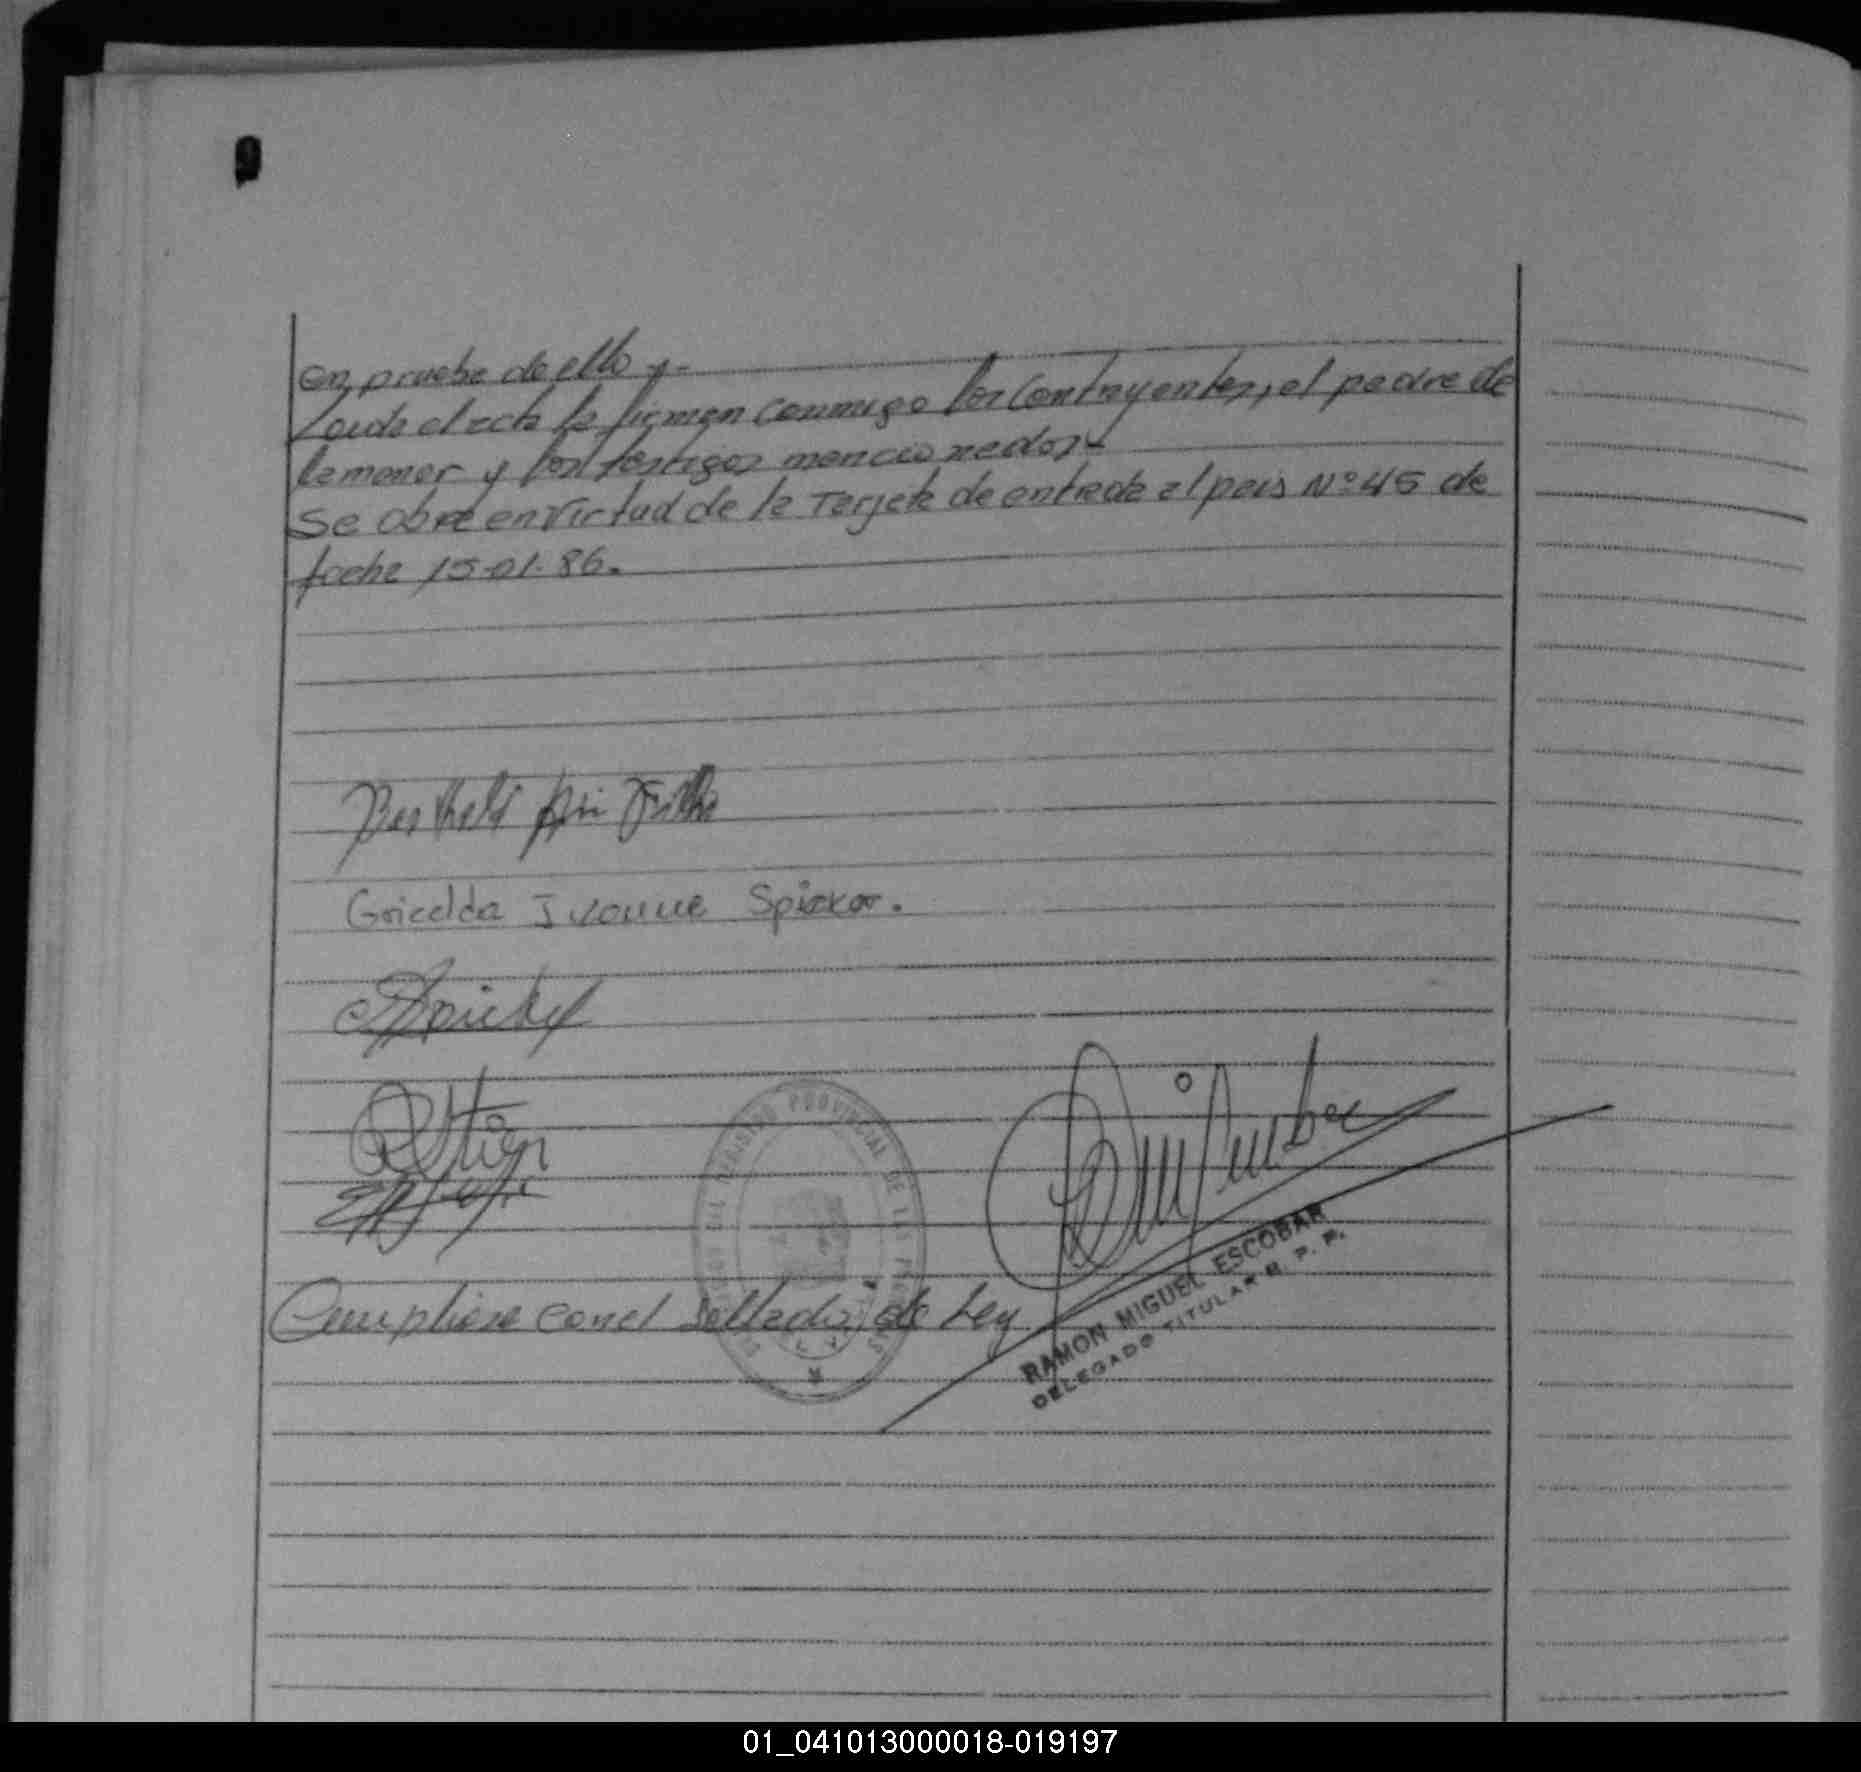 En prueba de ello y.-
Leida el acta la firman conmigo los Contrayentes, el padre de
la menor y los testigos mencionados.-
Se obra en virtud de la Tarjeta de entrada al pais Nº 45 de
fecha 15-01-86.
Griselda Ivonne Spicker.
Cumpliose con el Sellado de Ley
REGISTRO PROVINCIAL DE LAS PERSONAS
RAMON MIGUEL ESCOBAR
DELEGADO TITULAR R. P. P.
01_041013000018-019197